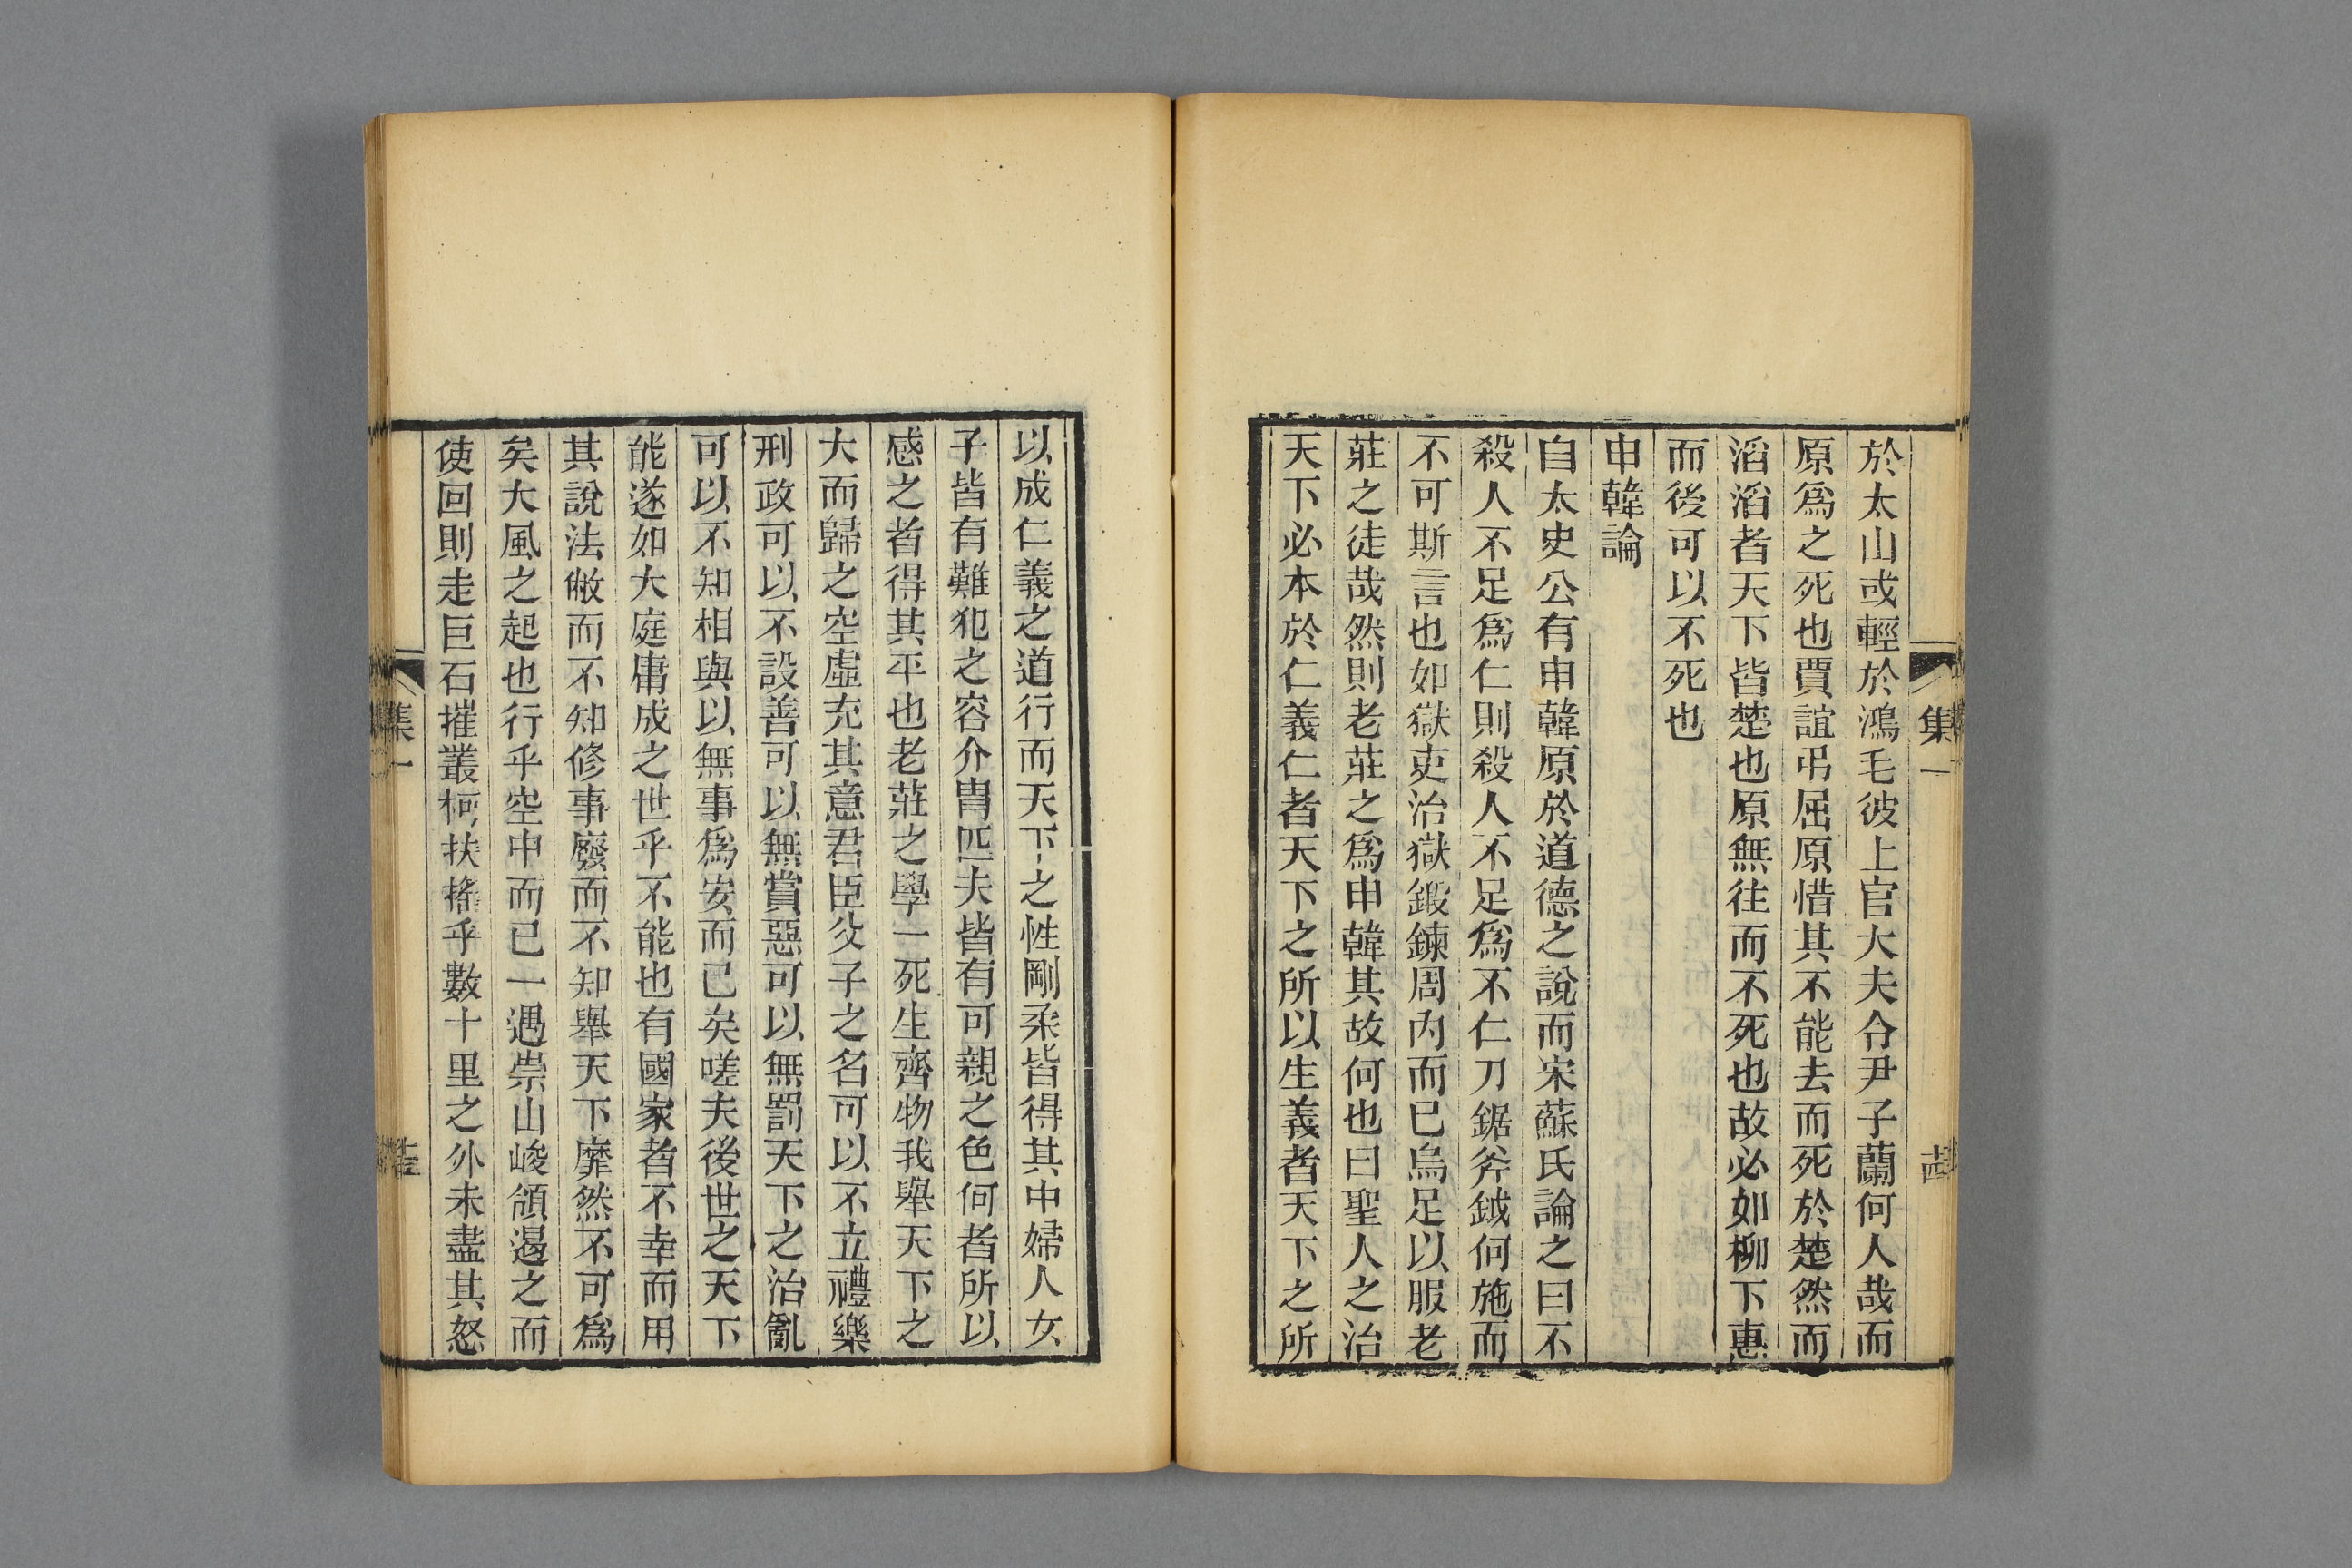 於太山或輕於鴻毛彼上官大夫令尹子蘭何人哉而
原爲之死也賈誼弔屈原惜其不能去而死於楚然而
滔滔者天下皆楚也原無往而不死也故必如柳下惠
而後可以不死也
申韓論
自太史公有申韓原於道德之說而宋蘇氏論之曰不
殺人不足爲仁則殺人不足爲不仁刀鋸斧鉞何施而
不可斯言也如獄吏治獄鍛鍊周内而已烏足以服老
莊之徒哉然則老莊之爲申韓其故何也曰聖人之治
天下必本於仁義仁者天下之所以生義者天下之所
以成仁義之道行而天下之性剛柔皆得其中婦人女
子皆有難犯之容介胄匹夫皆有可親之色何者所以
感之者得其平也老莊之學一死生齊物我舉天下之
大而歸之空虛充其意君臣父子之名可以不立禮樂
刑政可以不設善可以無賞惡可以無罰天下之治亂
可以不知相與以無事爲安而已矣嗟夫後世之天下
能遂如大庭庸成之世乎不能也有國家者不幸而用
其說法敝而不知修事廢而不知舉天下靡然不可爲
矣大風之起也行乎空中而已一遇崇山峻頟遏之而
使回則走巨石摧叢柯扶搖乎數十里之外未盡其怒
集一
十四
集一